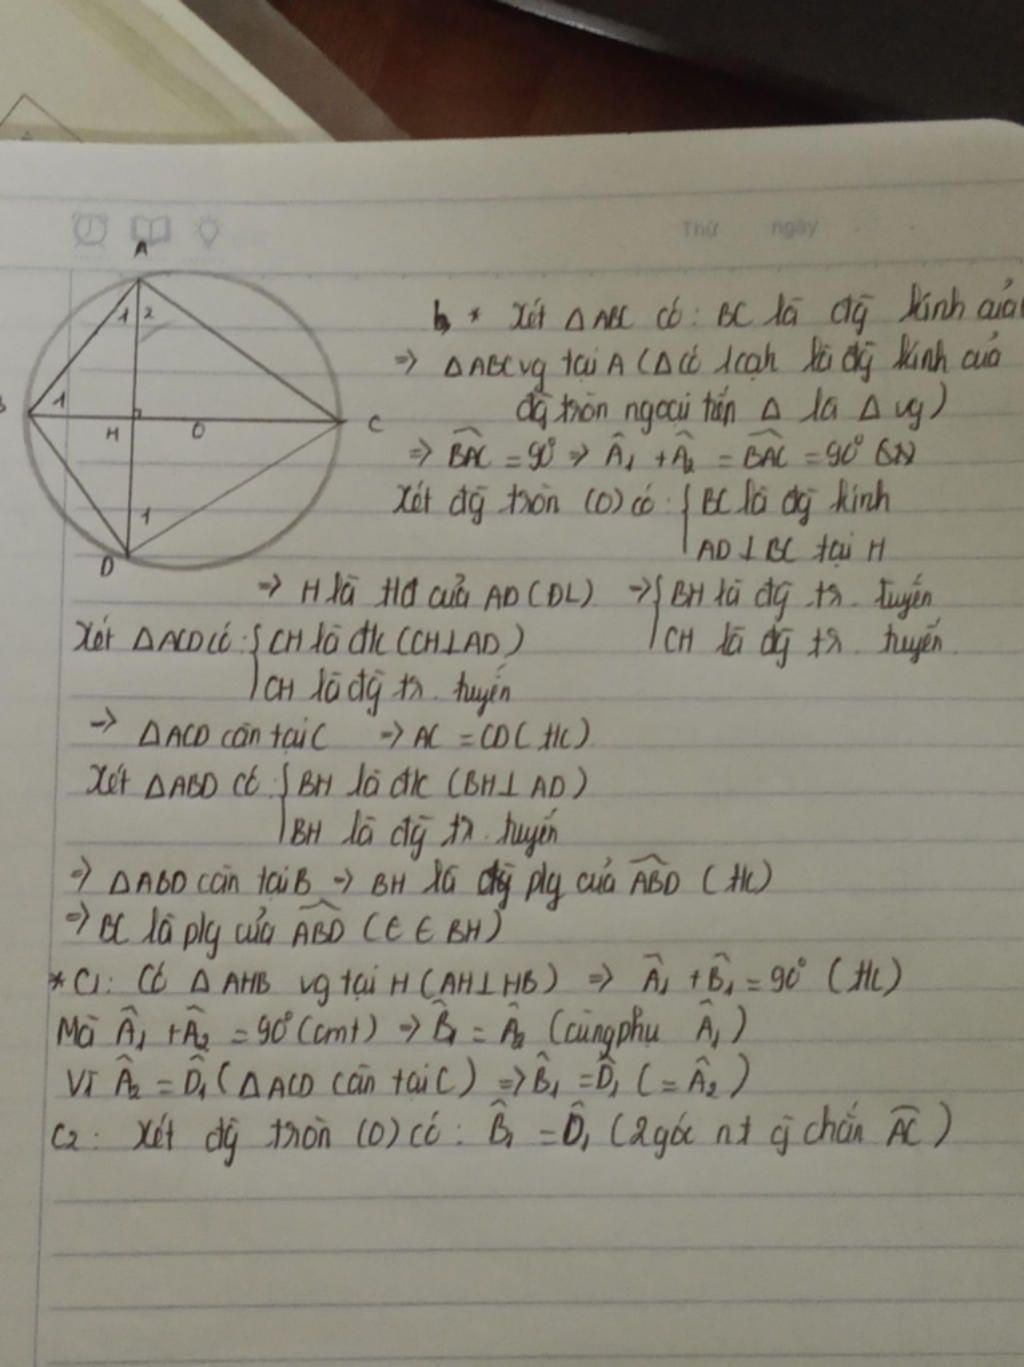 Thứ ngày
A
1 2
B 1 H O C
1
D
b, * Xét △ABC có: BC là đg̃ kính của
=> △ABC vg tại A (△ có 1 cạh là đg̃ kính của
đg̃ tròn ngoại tiến △ là △ vg)
=> BAC = 90° => Â₁ + Â₂ = BAC = 90°
Xét đg̃ tròn (O) có: { BC là đg̃ kính
AD ⊥ BC tại H
=> H là tđ của AD (DL) => { BH là đg̃ tr. tuyến
CH là đg̃ tr. tuyến
Xét △ACD có: { CH là đk (CH ⊥ AD)
CH là đg̃ tr. tuyến
=> △ACD cân tại C => AC = CD (tc)
Xét △ABD có { BH là đk (BH ⊥ AD)
BH là đg̃ tr. tuyến
=> △ABD cân tại B => BH là đg̃ plg của ABD (tc)
=> BC là plg của ABD (C ∈ BH)
* C1: Có △AHB vg tại H (AH ⊥ HB) => Â₁ + B̂₁ = 90° (tc)
Mà Â₁ + Â₂ = 90° (cmt) => B̂₁ = Â₂ (cùng phụ Â₁)
Vì Â₂ = D̂₁ (△ACD cân tại C) => B̂₁ = D̂₁ (= Â₂)
C2: Xét đg̃ tròn (O) có: B̂₁ = D̂₁ (2 góc nt cg̃ chắn AC)